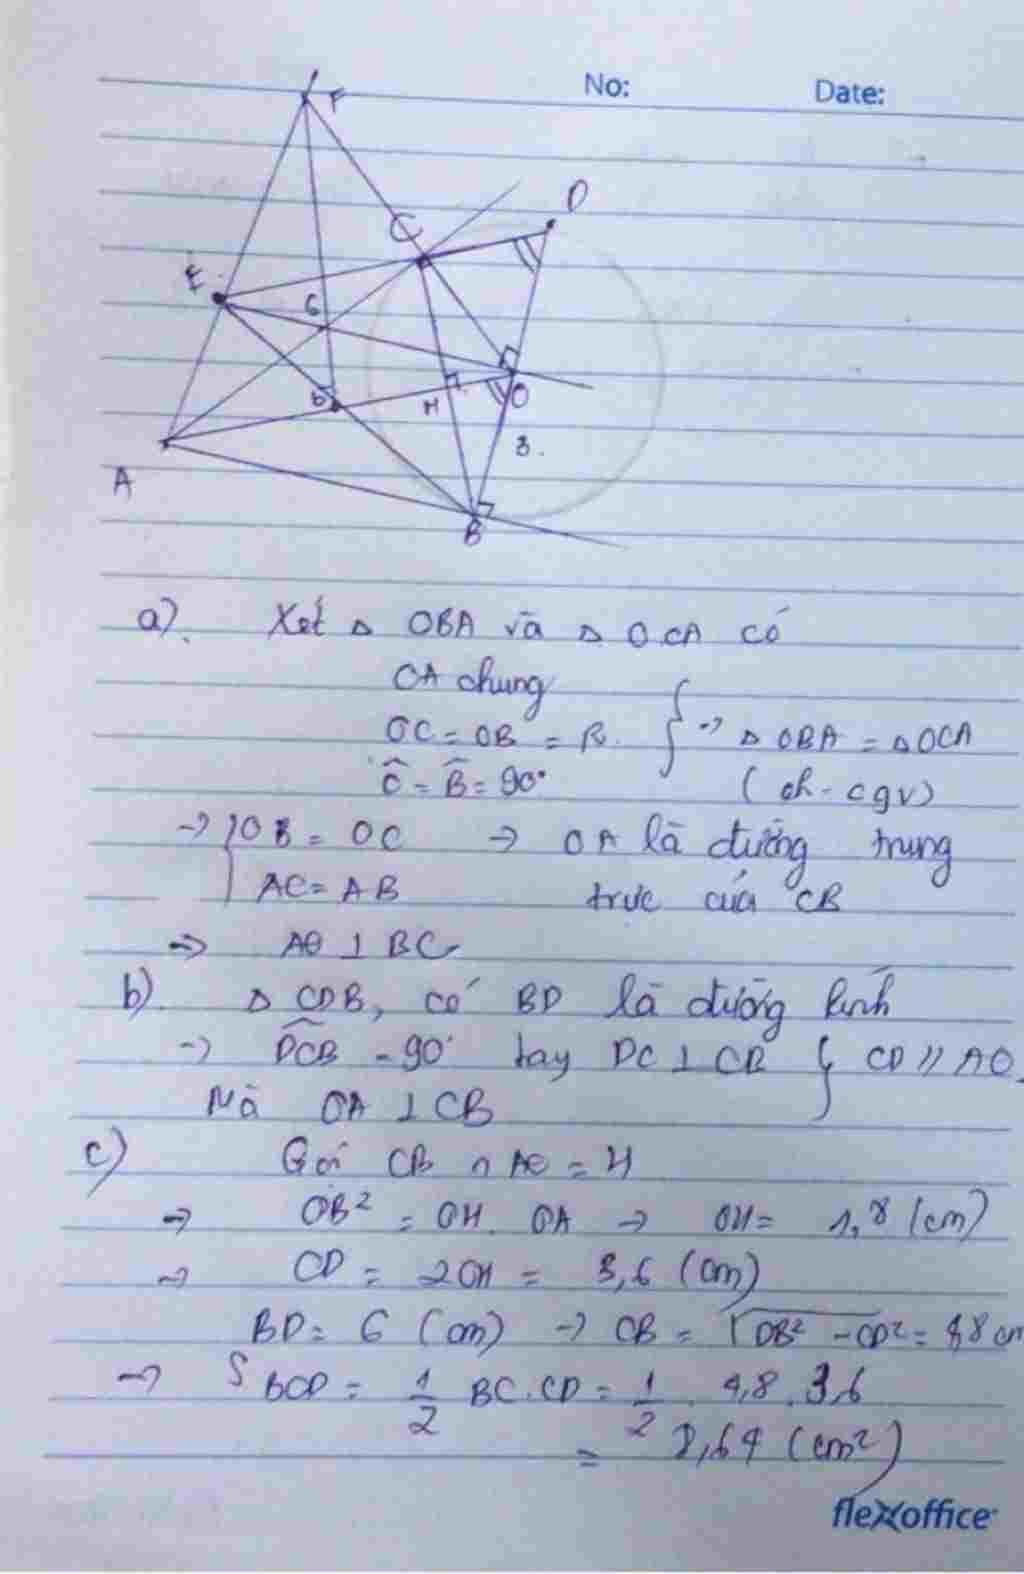 No: Date:
F
D
C
E
G
H
O
3
A
B
a) Xét △ OBA và △ OCA có
OA chung
OC = OB = R. } → △ OBA = △ OCA
Ĉ = B̂ = 90° (ch - cgv)
→ { OB = OC → OA là đường trung
AC = AB trực của CB
→ AO ⊥ BC
b) △ CDB, có BD là đường kính
→ DCB = 90° hay DC ⊥ CB } CD // AO
Mà OA ⊥ CB
c) Gọi CB ∩ AO = H
→ OB² = OH. OA → OH = 1,8 (cm)
→ CD = 2OH = 3,6 (cm)
BD = 6 (cm) → CB = √DB² - CD² = 4,8 cm
→ S BCD = 1/2 BC.CD = 1/2 . 4,8 . 3,6
= 8,64 (cm²)
flexoffice